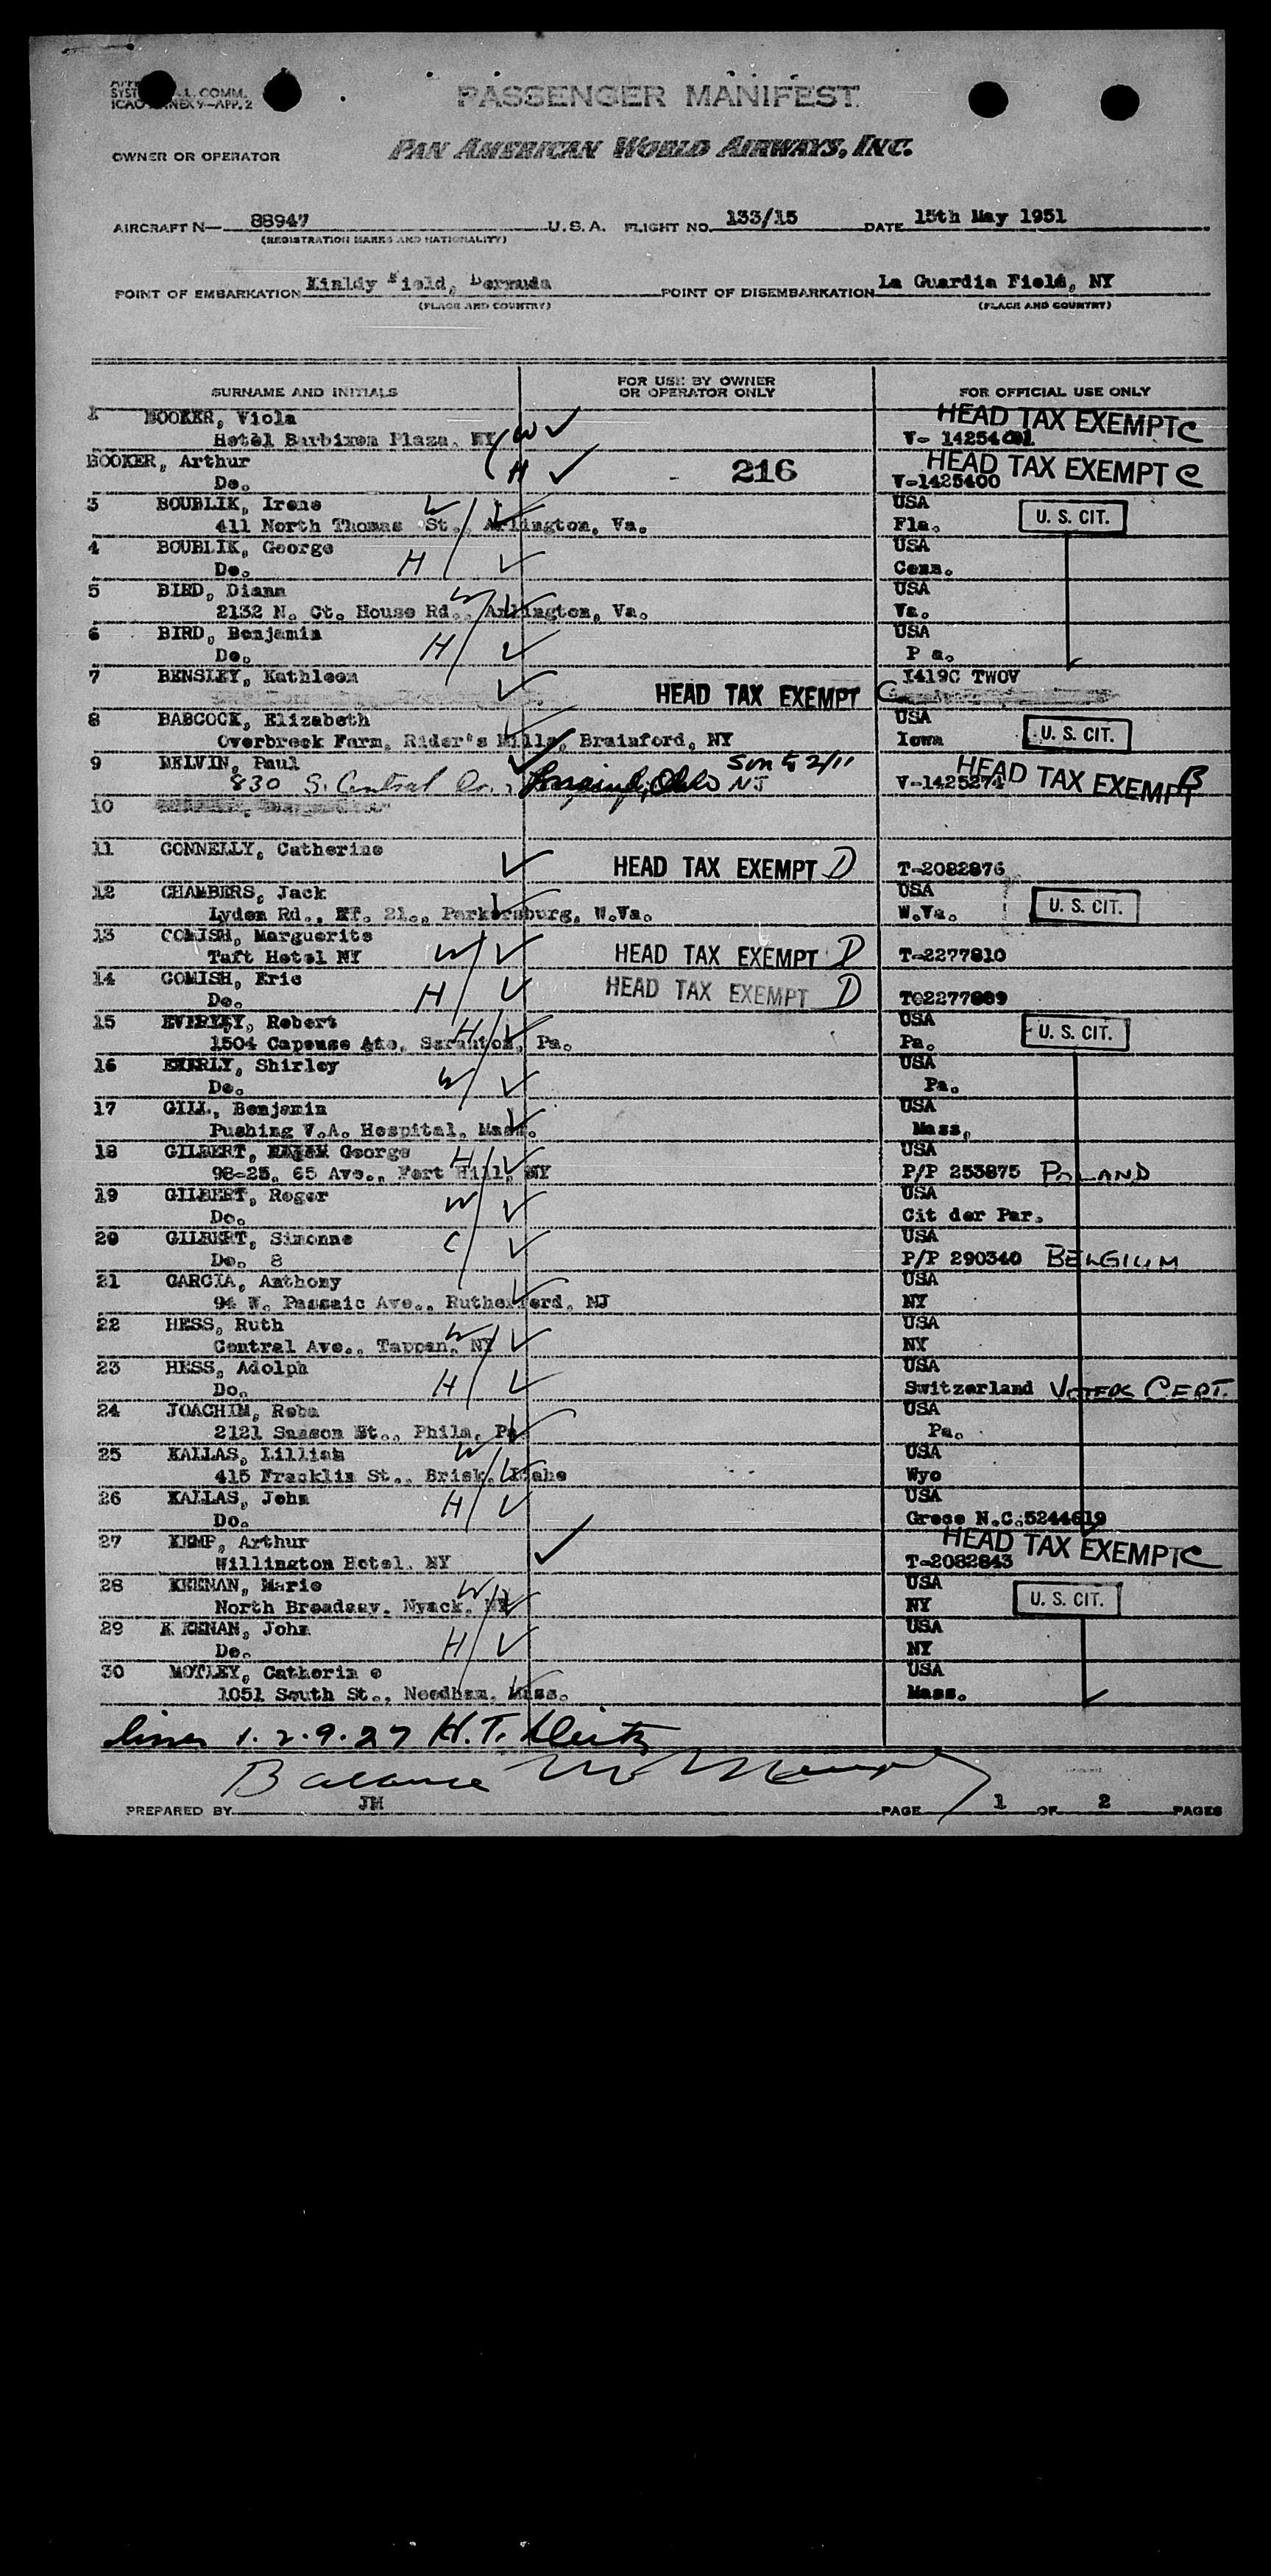 SYST COMM.
ICAO ANNEX 9—APP. 2
PASSENGER MANIFEST
OWNER OR OPERATOR PAN AMERICAN WORLD AIRWAYS, INC.
AIRCRAFT N— 88947 U.S.A. FLIGHT NO. 133/15 DATE 15th May 1951
(REGISTRATION MARKS AND NATIONALITY)
POINT OF EMBARKATION Kinldy Field, Bermuda POINT OF DISEMBARKATION La Guardia Field, NY
(PLACE AND COUNTRY) (PLACE AND COUNTRY)
SURNAME AND INITIALS FOR USE BY OWNER OR OPERATOR ONLY FOR OFFICIAL USE ONLY
1 BOOKER, Viola HEAD TAX EXEMPT C
Hotel Barbizon Plaza, NY W V-
BOOKER, Arthur HEAD TAX EXEMPT C
Do. H 216 V-1425400
3 BOUBLIK, Irene W USA
411 North Thomas St., Arlington, Va. Fla. U. S. CIT.
4 BOUBLIK, George USA
Do. H Conn.
5 BIRD, Diann W USA
2132 N. Ct. House Rd., Arlington, Va. Va.
6 BIRD, Benjamin USA
Do. H P a.
7 BENSLEY, Kathleen I419C TWOV
HEAD TAX EXEMPT C
8 BABCOCK, Elizabeth USA
Overbrook Farm, Rider's Mills, Brainford, NY Iowa U. S. CIT.
9 BELVIN, Paul HEAD TAX EXEMPT B
830 S. Central Ohio NJ V-1425274
10
11 CONNELLY, Catherine
HEAD TAX EXEMPT D T-2082876
12 CHAMBERS, Jack USA
Lyden Rd., RT. 21., Parkersburg, W.Va. W.Va. U. S. CIT.
13 COMISH, Marguerite
Taft Hotel NY W HEAD TAX EXEMPT D T-2277810
14 COMISH, Eric
Do. H HEAD TAX EXEMPT D T02277809
15 EVERLY, Robert H USA
1504 Capouse Ave, Scranton, Pa. Pa. U. S. CIT.
16 EVERLY, Shirley USA
Do. W Pa.
17 GILL, Benjamin USA
Pushing V.A. Hospital, Mass. Mass.
18 GILBERT, George H USA
98-25, 65 Ave., Fort Hill, NY P/P 253875 POLAND
19 GILBERT, Roger W USA
Do. Cit der Par.
20 GILBERT, Simonne C USA
Do. 8 P/P 290340 BELGIUM
21 GARCIA, Anthony USA
94 W. Passaic Ave., Rutherferd, NJ NY
22 HESS, Ruth W USA
Central Ave., Tappan, NY NY
23 HESS, Adolph USA
Do. H Switzerland VOTERS CERT.
24 JOACHIM, Reba USA
2121 Sansom St., Phila, Pa Pa.
25 KALLAS, Lillian W USA
415 Franklin St., Brisk, Idaho Wyo
26 KALLAS, John H USA
Do. Grece N.C.5244619
27 KEMP, Arthur HEAD TAX EXEMPT C
Willington Hotel. NY T-2082843
28 KEENAN, Marie W USA
North Broadway. Nyack, NY NY U. S. CIT.
29 K KENAN, John USA
Do. H NY
30 MOTLEY, Catherin e USA
1051 South St., Needham, Mass. Mass.
lines 1. 2. 9. 27 H.T.
Balance
PREPARED BY JM PAGE 1 OF 2 PAGES